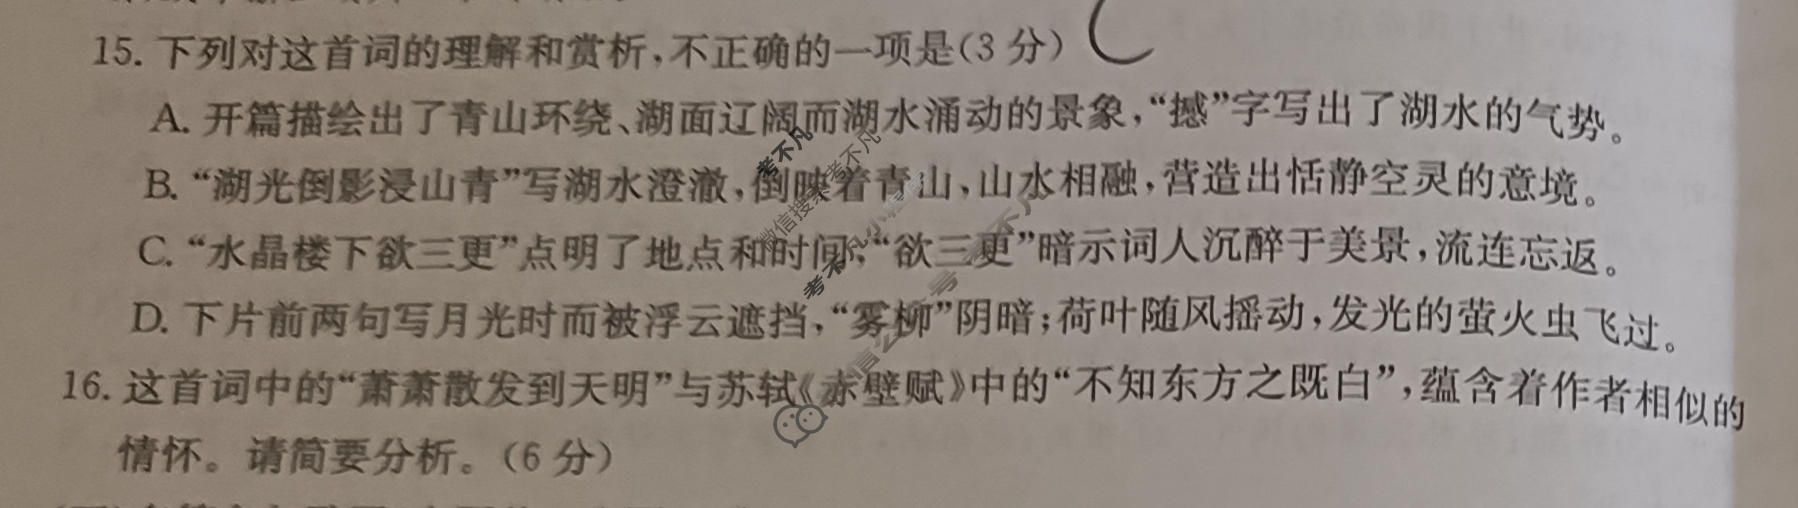 15. 下列对这首词的理解和赏析,不正确的一项是(3 分) C
A. 开篇描绘出了青山环绕、湖面辽阔而湖水涌动的景象,“撼”字写出了湖水的气势。
B. “湖光倒影浸山青”写湖水澄澈,倒映着青山,山水相融,营造出恬静空灵的意境。
C. “水晶楼下欲三更”点明了地点和时间,“欲三更”暗示词人沉醉于美景,流连忘返。
D. 下片前两句写月光时而被浮云遮挡,“雾柳”阴暗;荷叶随风摇动,发光的萤火虫飞过。
16. 这首词中的“萧萧散发到天明”与苏轼《赤壁赋》中的“不知东方之既白”,蕴含着作者相似的
情怀。请简要分析。(6 分)
考不凡
微信搜索考不凡